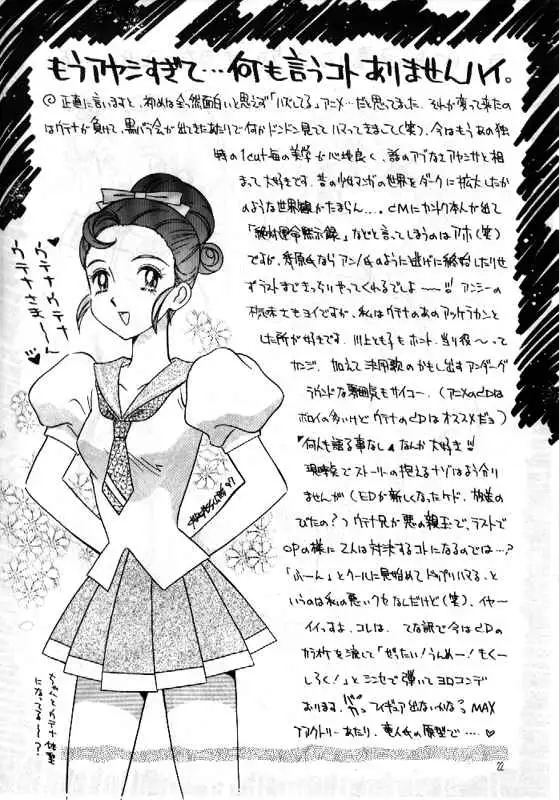 もうアヤシすぎて…何も言うコトありませんハイ。
◎正直に言いますと、初めは全然面白いと思えず「ハズしてる」アニメ…だと思ってました。それが変って来たの
はウテナが負けて、黒バラ会が出てきたあたりで何かドンドン見ててハマってきまして(笑)、今はもうあの独
特の1cut毎の美学が心地良く、話のアブなさアヤシサと相
まって大好きです。昔の少女マンガの世界をダークに拡大したか
のような世界観がたまらん…。CMにカントク本人が出て
「絶対運命黙示録」などと言ってしまうのはアホ(笑)
ですが、幾原氏ならアンノ氏のように逃げに終始したりせ
ずラストまできっちりやってくれるでしょ〜!! アンシーの
もヨイですが、私はウテナのあのアッケラカンと
した所が好きです。川上とも子もホント、当り役〜って
カンジ。加えて決闘歌のかもし出すアンダーグ
ラウンドな雰囲気もサイコー。(アニメのCDは
ボロイの多いけどウテナのCDはオススメだょ)
"何人も語る事なし"なんか大好き!!
現時点でストーリーの抱えるナゾはよう分り
ませんが(EDが新しくなったケド、放送の
びたの?)ウテナ兄が悪の親玉で、ラストで
OPの様に2人は対決するコトになるのでは…?
「ふーん」とクールに見始めてドップリハマる、と
いうのは私の悪いクセなんだけど(笑)、イヤー
イイっすよ、コレは。てな訳で今はCDの
カラオケを流して「ぜったい!うんめー!もくー
しろく!」とミンセで弾いてヨロコンデ
おります。フィギュア出ないかな? MAX
ファクトリーあたり、竜人氏の原型で……♥
ウテナ ウテナ
ウテナさま〜〜ん
'97
ちょっとウテナ体型
になってる〜?
22